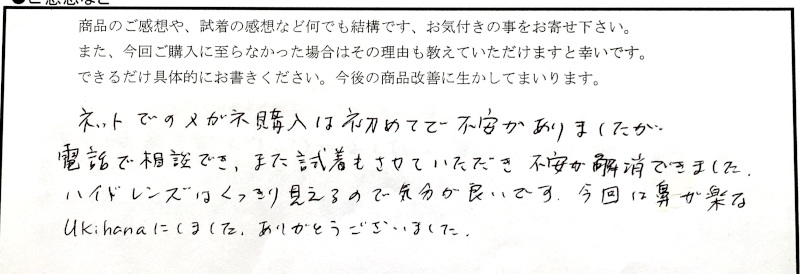 商品のご感想や、試着の感想など何でも結構です、お気付きの事をお寄せ下さい。
また、今回ご購入に至らなかった場合はその理由も教えていただけますと幸いです。
できるだけ具体的にお書きください。今後の商品改善に生かしてまいります。
ネットでのメガネ購入は初めてで不安がありましたが
電話で相談でき、また試着もさせていただき不安が解消できました.
ハイドレンズはくっきり見えるので気分が良いです. 今回は鼻が楽な
Ukihanaにしました. ありがとうございました.